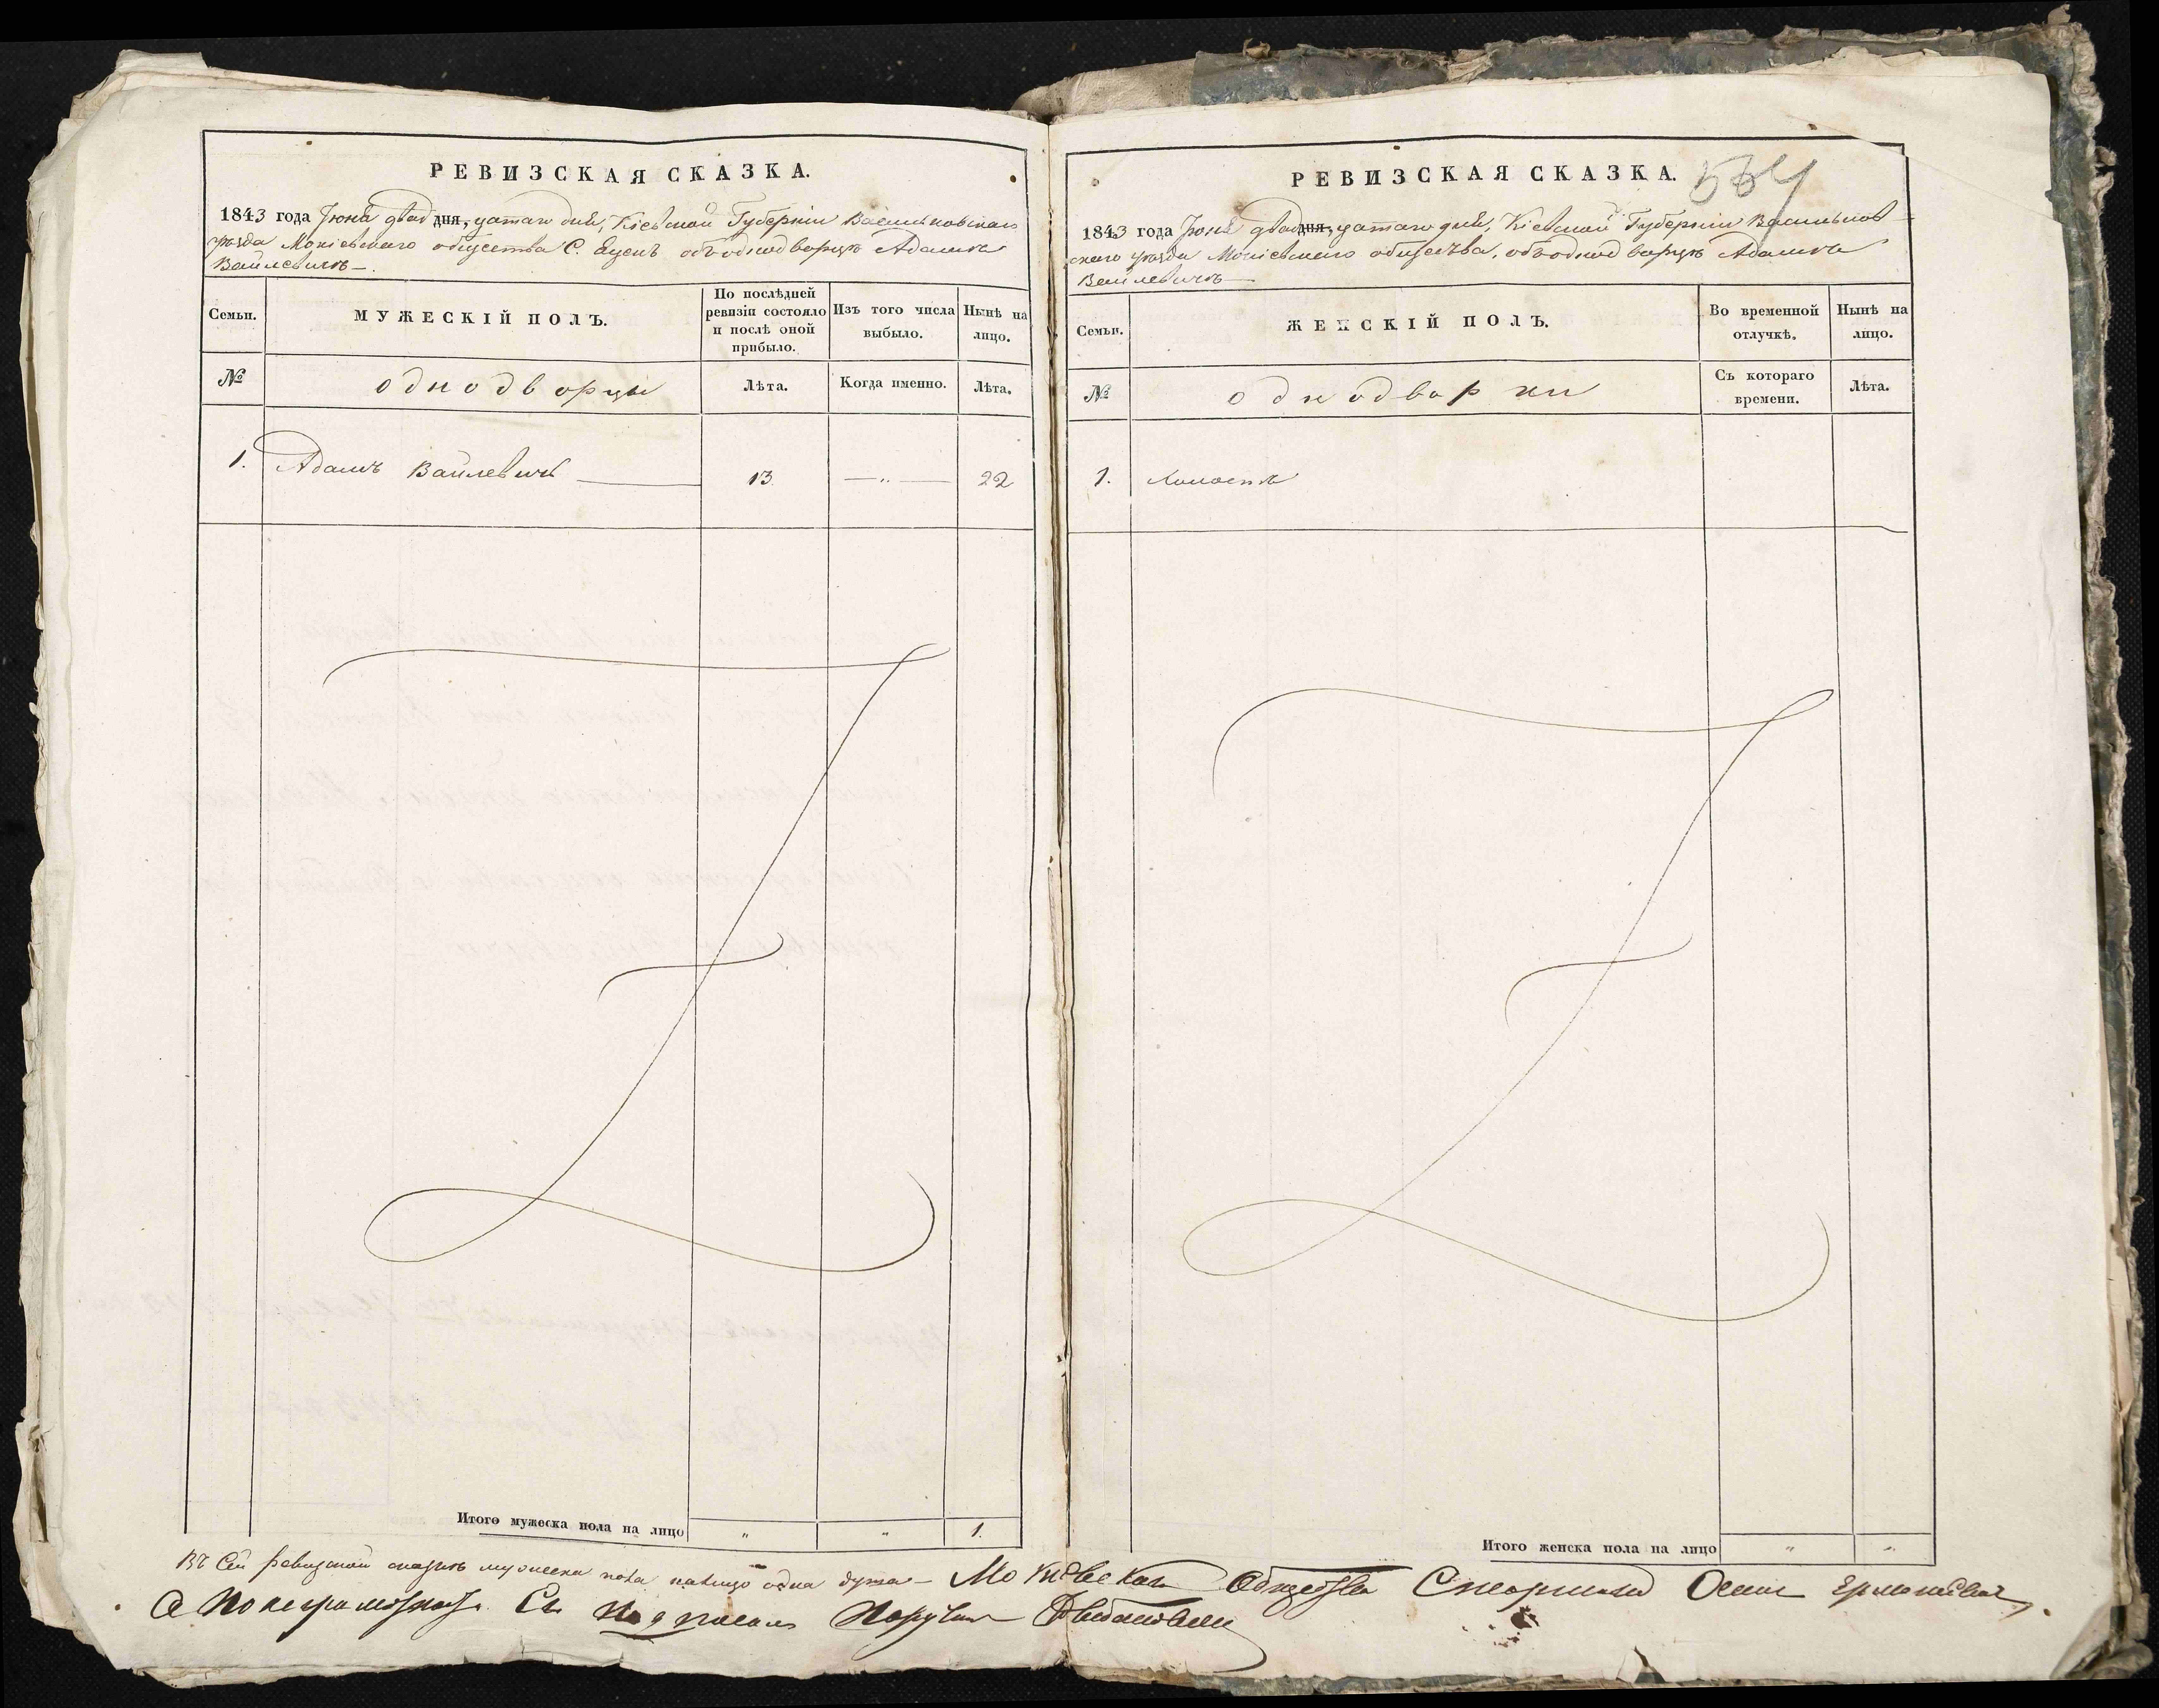 РЕВИЗСКАЯ СКАЗКА.
1843 года Іюня двад дня, цатаго дня, Кіевской Губерніи Васильковскаго
уѣзда Мокіевскаго общества С. объ однодворцѣ Адамѣ
Вайлевичѣ —.
Семьи.
МУЖЕСКІЙ ПОЛЪ.
По послѣдней ревизіи состояло и послѣ оной прибыло.
Изъ того числа выбыло.
Нынѣ на лицо.
№
однодворцы
Лѣта.
Когда именно.
Лѣта.
1. Адамъ Вайлевичъ — 13. — „ — 22
Итого мужеска пола на лицо „ „ 1.
РЕВИЗСКАЯ СКАЗКА.
1843 года Іюня двад дня, цатаго дня, Кіевской Губерніи Васильков-
скаго уѣзда Мокіевскаго общества, объ однодворцѣ Адамѣ
Вайлевичѣ —
Семьи.
ЖЕНСКІЙ ПОЛЪ.
Во временной отлучкѣ.
Нынѣ на лицо.
№
однодворки
Съ котораго времени.
Лѣта.
1. Холостъ
Итого женска пола на лицо „ „
Въ Сей ревизской сказкѣ мужеска пола налицо одна душа — Мокиевскаго Общества Осип